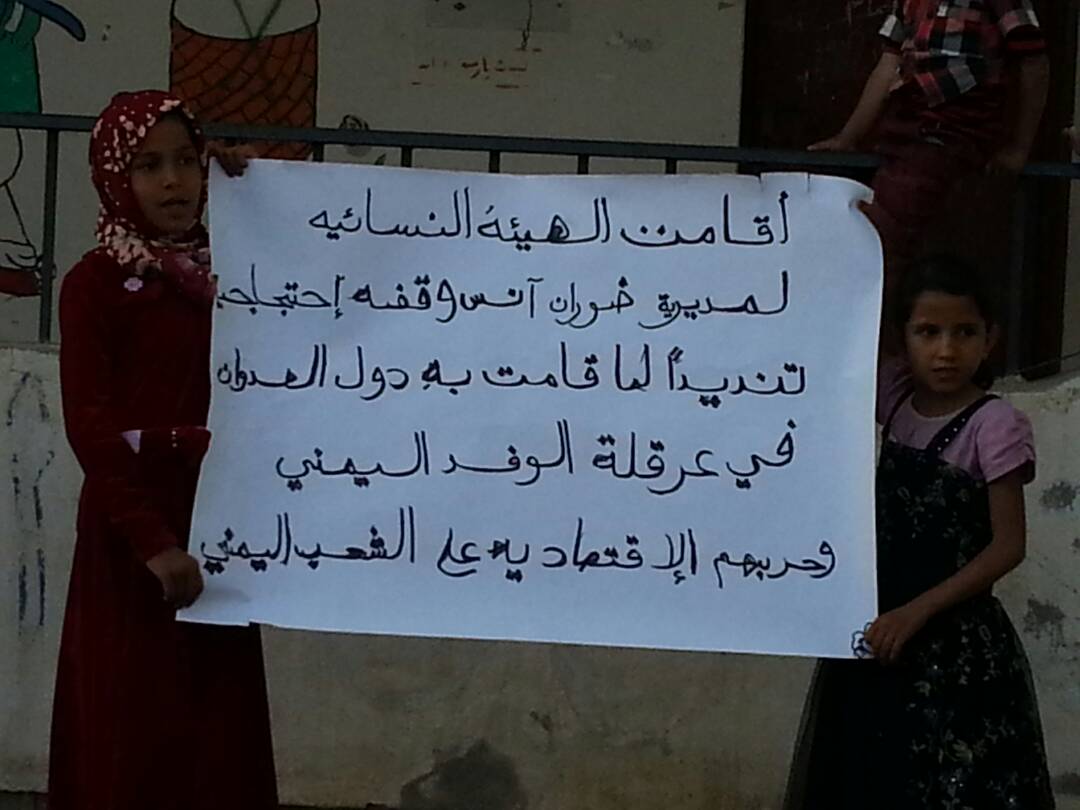 أقامت الهيئةُ النسائيه
لمديرية ضوران آنس وقفه إحتجاجيه
تنديداً لما قامت به دول العدوان
في عرقلة الوفد اليمني
وحربهم الإقتصاديه على الشعب اليمني